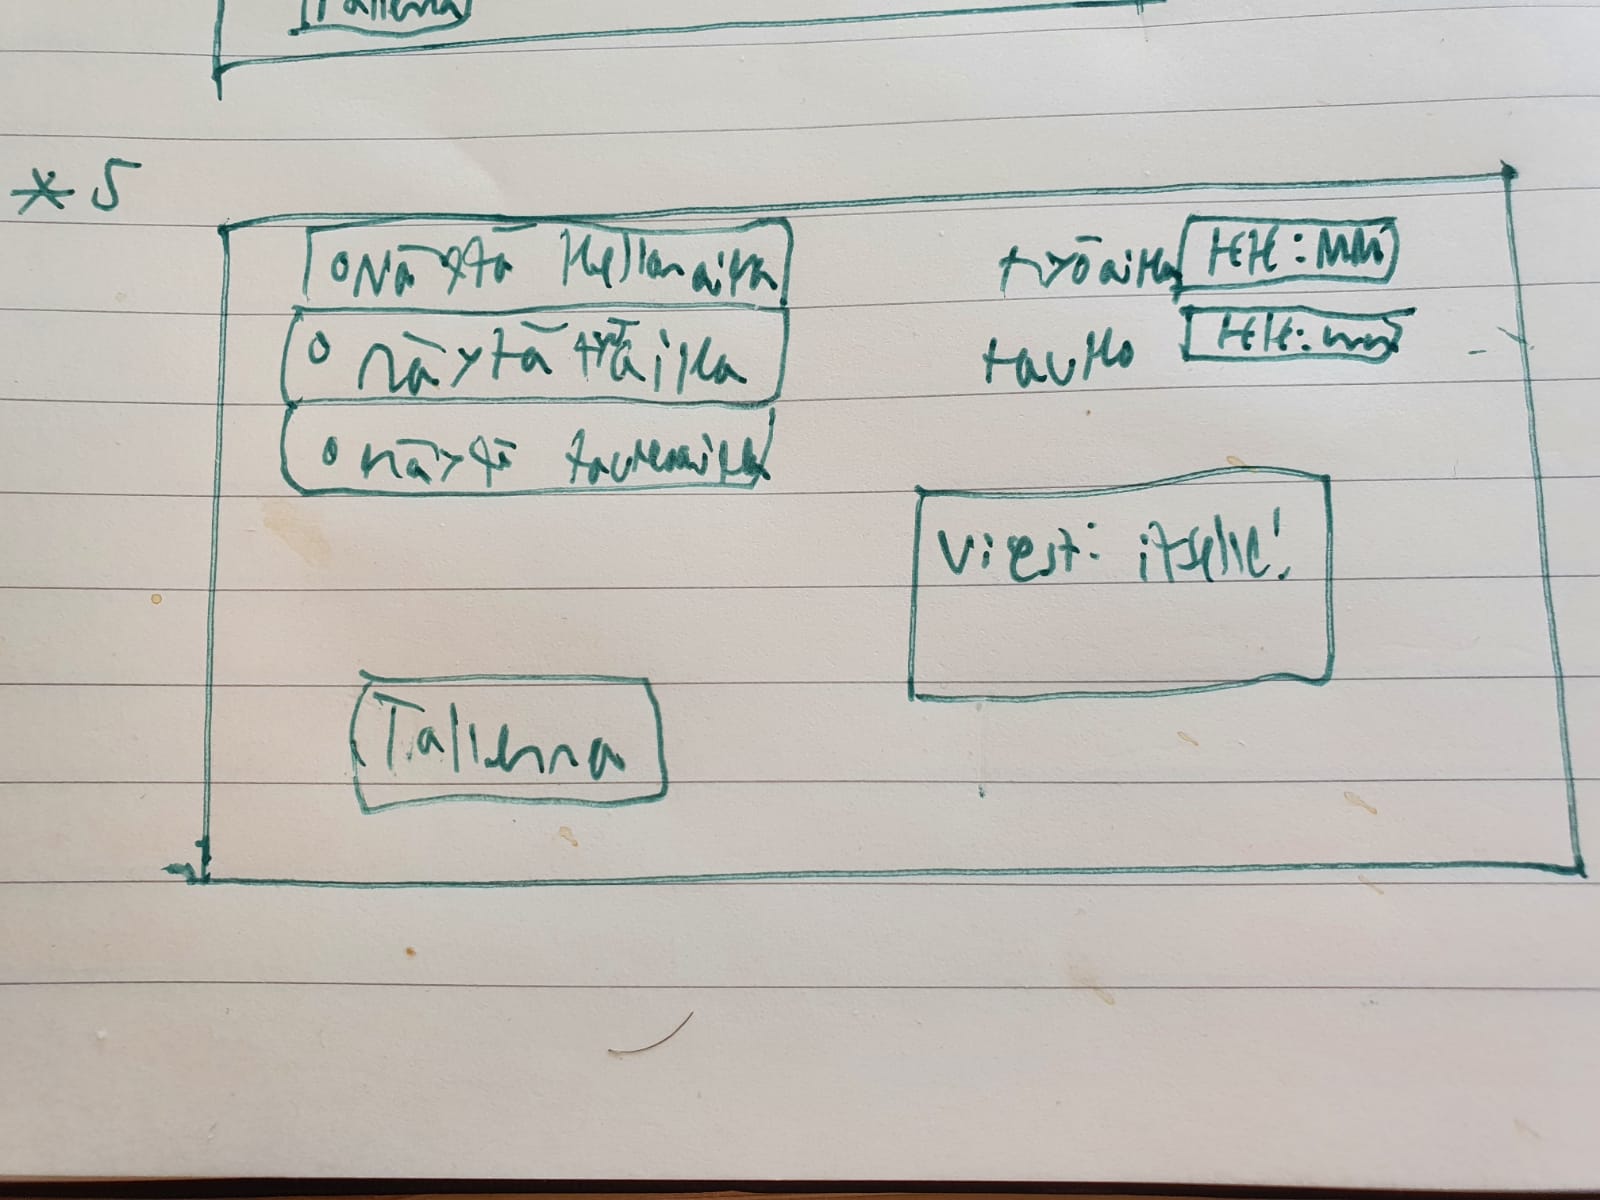 Tallenna
* 5
o Näytä kellonaika
o näytä työaika
o näytä taukoaika
työaika HH:MM
tauko HH:mm
Viesti itselle!
Tallenna